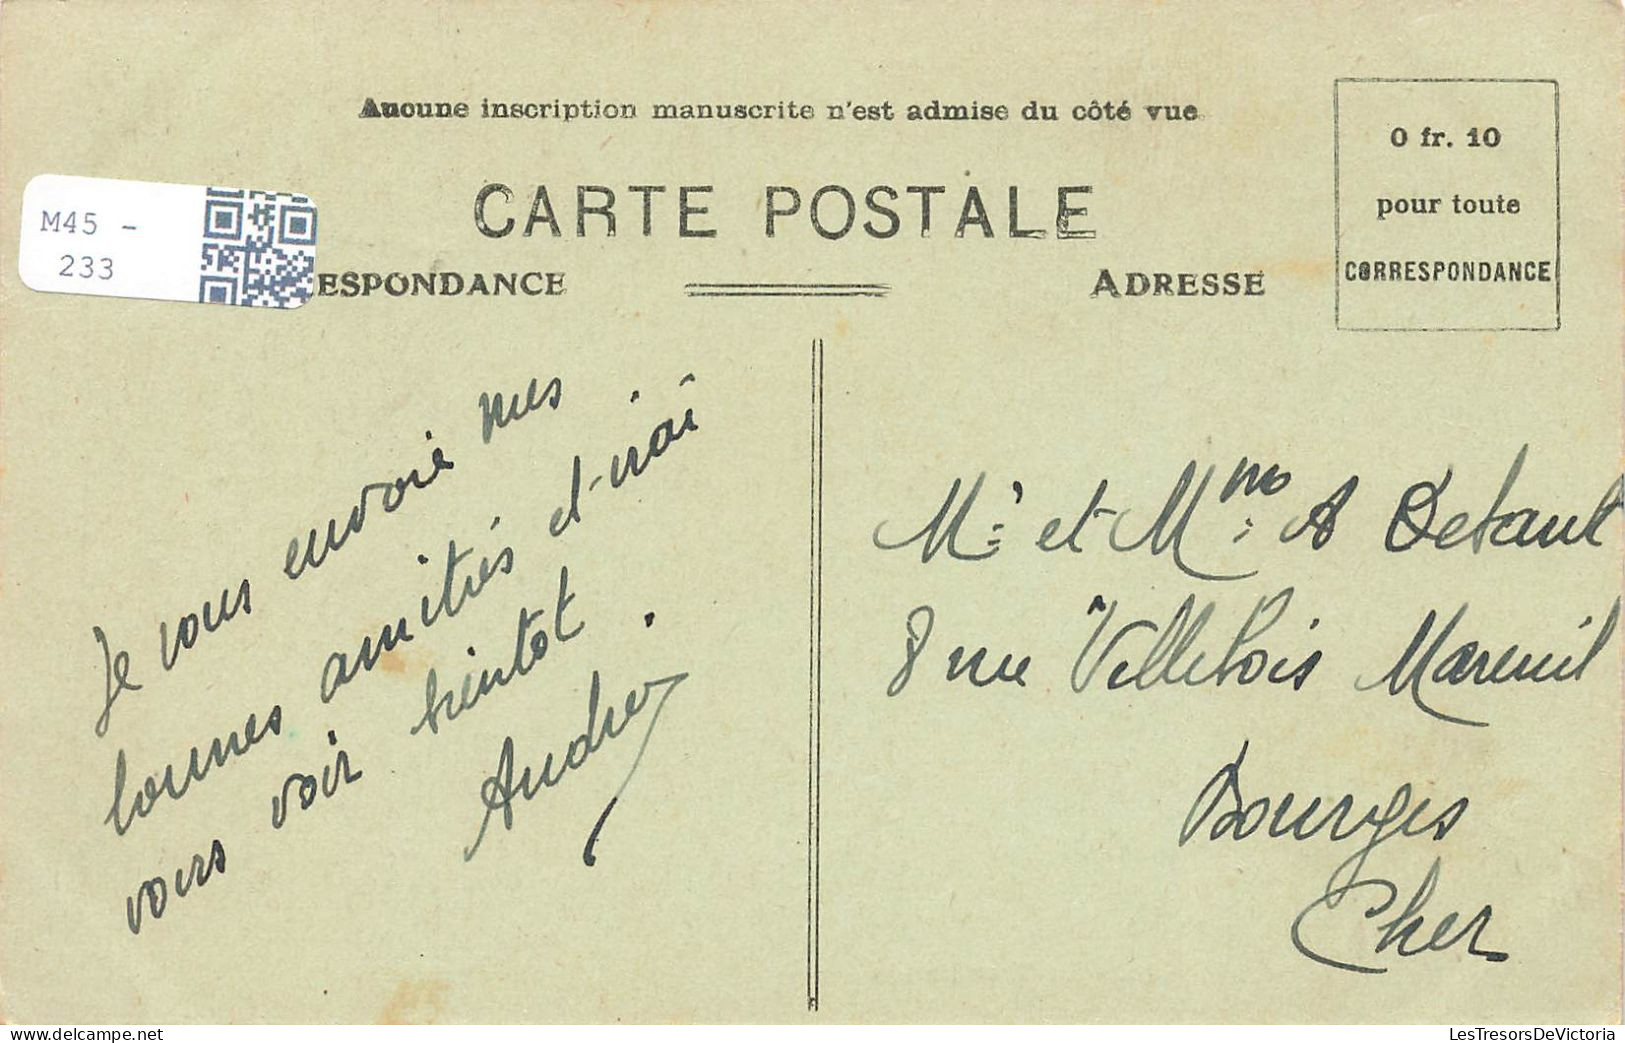 Aucune inscription manuscrite n'est admise du côté vue
CARTE POSTALE
ESPONDANCE
ADRESSE
0 fr. 10
pour toute
CORRESPONDANCE
M45 -
233
Je vous envoie mes
bonnes amitiés et irai
vous voir bientot.
Andrée
Mr et Mme A Detaut
8 rue Villebois Mareuil
Bourges
Cher
LesTresorsDeVictoria